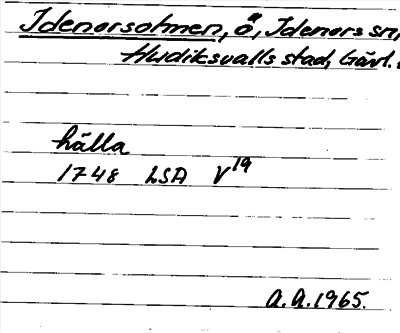 Idenorsolmen, ö, Idenors sn,
Hudiksvalls stad, Gävl.
hälla
1748 LSA V19
A.A. 1965.